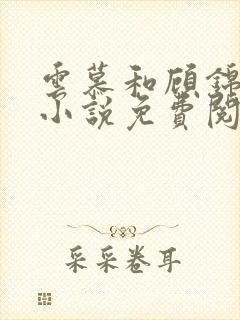 雲慕和顾錦
小說免費閱
采采卷耳